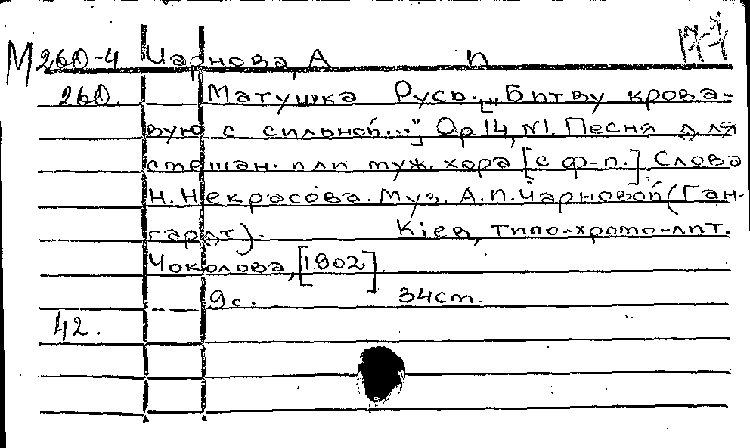 М 260-4 Чарнова, А П
260. Матушка Русь. [„Битву крова-
вую с сильной..."] Ор 14, №1. Песня для
смешан. или муж. хора [с ф-п.] Слова
Н. Некрасова. Муз. А. П. Чарновой (Ган-
гардт). Кіев, типо-хромо-лит.
Чоколова, [1902]
9с. 34см.
42.